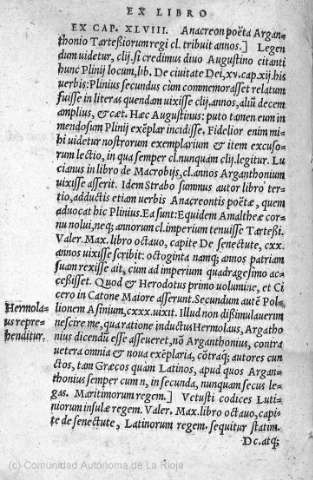 EX LIBRO
EX CAP. XLVIII. Anacreon poëta Argan-
thonio Tarteßiorum regi cl. tribuit annos.] Legen
dum uidetur, clij. si credimus diuo Augustino citanti
hunc Plinij locum, lib. De ciuitate Dei, xv. cap. xij. his
uerbis: Plinius secundus cùm commorasset relatum
fuisse in literas quendam uixisse clij. annos, alij decem
amplius, &cæt. Hæc Augustinus: puto tamen eum in
mendosum Plinij exẽplar incidisse. Fidelior enim mi-
hi uidetur nostrorum exemplarium & item excuso-
rum lectio, in qua semper cl. nunquam clij. legitur. Lu
cianus in libro de Macrobijs, cl. annos Arganthonium
uixisse asserit. Idem Strabo summus autor libro ter-
tio, adductis etiam uerbis Anacreontis poëtæ, quem
aduocat hic Plinius. Ea sunt: Equidem Amaltheæ cor-
nu nolui, neq; annorum cl. imperium tenuisse Tarteßi.
Valer. Max. libro octauo, capite De senectute, cxx.
annos uixisse scribit: octoginta namq; annos patriam
suam rexisse ait, cum ad imperium quadragesimo ac-
ceßisset. Quod & Herodotus primo uolumine, et Ci
cero in Catone Maiore asserunt. Secundum autẽ Pol
lionem Asinium, cxxx. uixit. Illud non dißimulauerim
Hermola-
us repre-
henditur.
nescire me, qua ratione inductus Hermolaus, Argatho
nius dicendũ esse asseueret, nō Arganthonius, contra
uetera omnia & noua exẽplaria, cōtraq; autores cun
ctos, tam Græcos quam Latinos, apud quos Argan-
thonius semper cum n, in secunda, nunquam secus le-
gas. Maritimorum regem.] Vetusti codices Luti-
niorum insulæ regem. Valer. Max. libro octauo, capi-
te de senectute, Latinorum regem. sequitur statim.
Dc. atq;
(c) Comunidad Autónoma de La Rioja